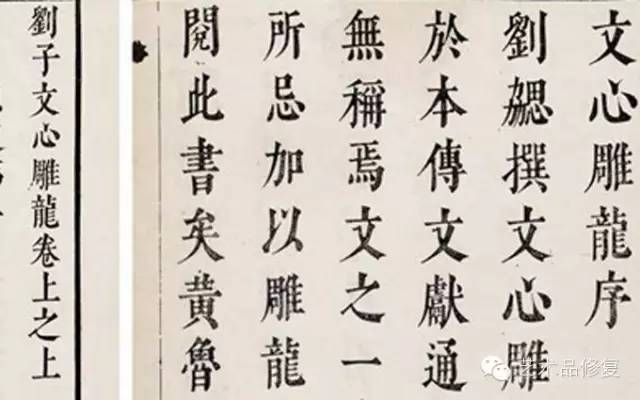 文心雕龍序
劉勰撰文心雕
於本傳文獻通
無稱焉文之一
所忌加以雕龍
閱此書矣黄魯
劉子文心雕龍卷上之上
艺术品修复